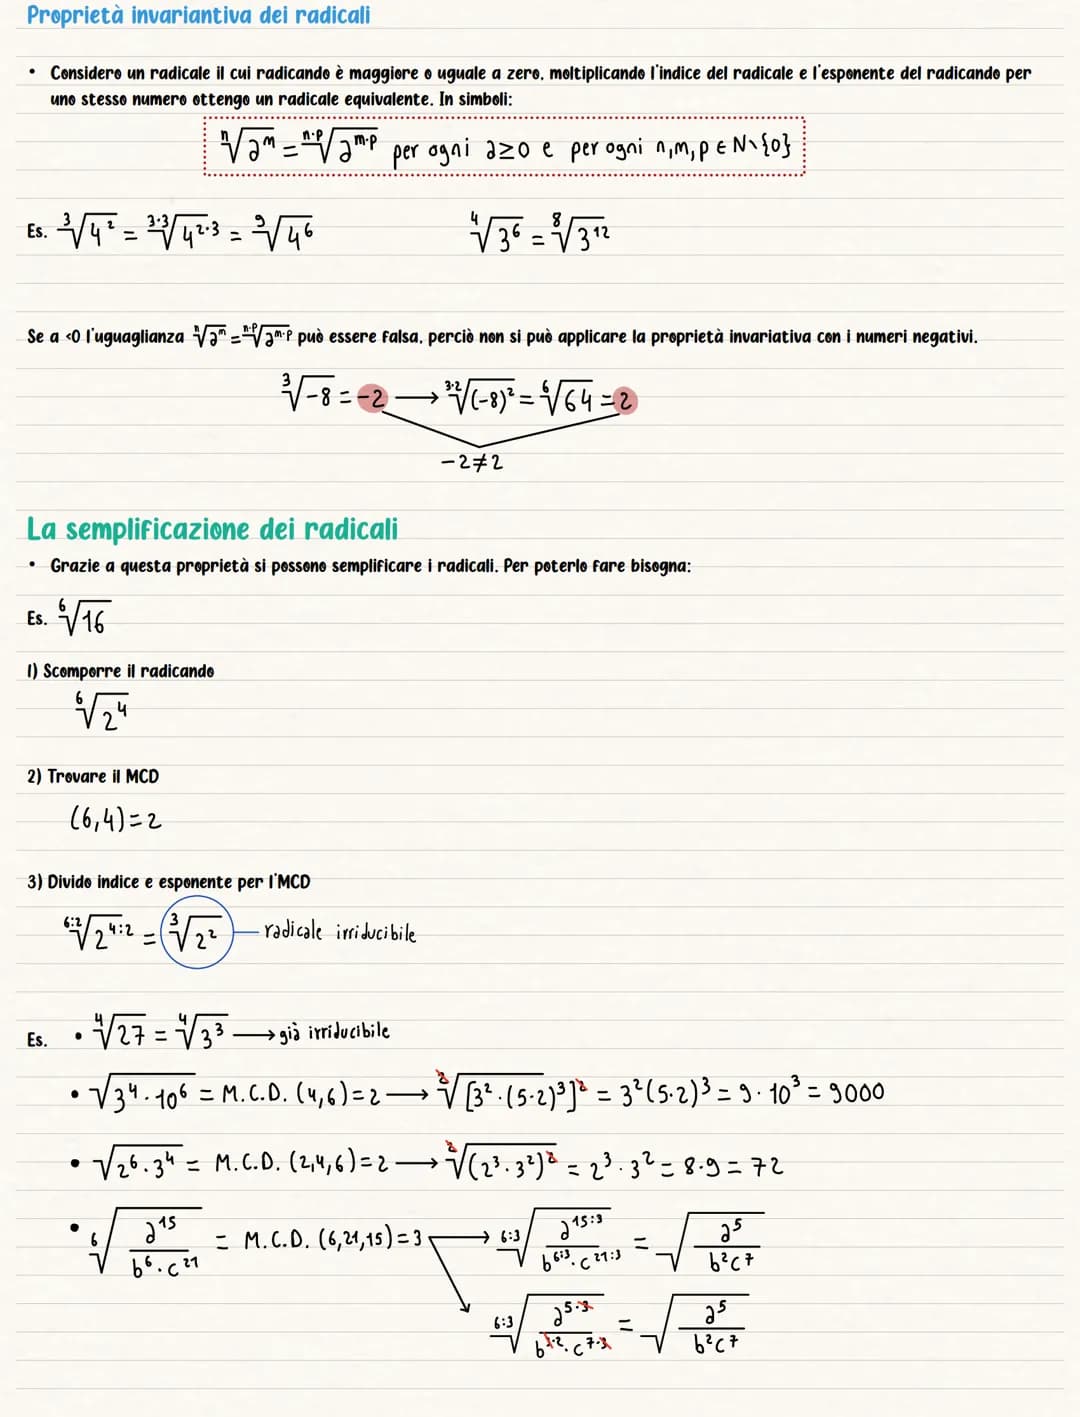 Proprietà invariantiva dei radicali
• Considero un radicale il cui radicando è maggiore o uguale a zero, moltiplicando l'indice del radicale e l'esponente del radicando per
uno stesso numero ottengo un radicale equivalente. In simboli:
ⁿ√aᵐ = ⁿ·ᵖ√aᵐ·ᵖ per ogni a≥0 e per ogni n,m,p ∈ N\{0}
Es. ³√4² = ³·³√4²·³ = ⁹√4⁶ ⁴√3⁶ = ⁸√3¹²
Se a <0 l'uguaglianza ⁿ√aᵐ = ⁿ·ᵖ√aᵐ·ᵖ può essere falsa, perciò non si può applicare la proprietà invariativa con i numeri negativi.
³√-8 = -2 → ³·²√(-8)² = ⁶√64 = 2
-2≠2
La semplificazione dei radicali
• Grazie a questa proprietà si possono semplificare i radicali. Per poterlo fare bisogna:
Es. ⁶√16
1) Scomporre il radicando
⁶√2⁴
2) Trovare il MCD
(6,4)=2
3) Divido indice e esponente per l'MCD
⁶:²√2⁴:² = ³√2² radicale irriducibile
Es. • ⁴√27 = ⁴√3³ → già irriducibile
• √3⁴·10⁶ = M.C.D. (4,6)=2 → ²√[3²·(5·2)³]² = 3²(5·2)³ = 9·10³ = 9000
• √2⁶·3⁴ = M.C.D. (2,4,6)=2 → ²√(2³·3²)² = 2³·3² = 8·9 = 72
• ⁶√(a¹⁵/(b⁶·c²¹)) = M.C.D. (6,21,15)=3 → ⁶:³√(a¹⁵:³/(b⁶:³·c²¹:³)) = √(a⁵/(b²c⁷))
⁶:³√(a⁵·³/(b³·²·c⁷·³)) = √(a⁵/(b²c⁷))